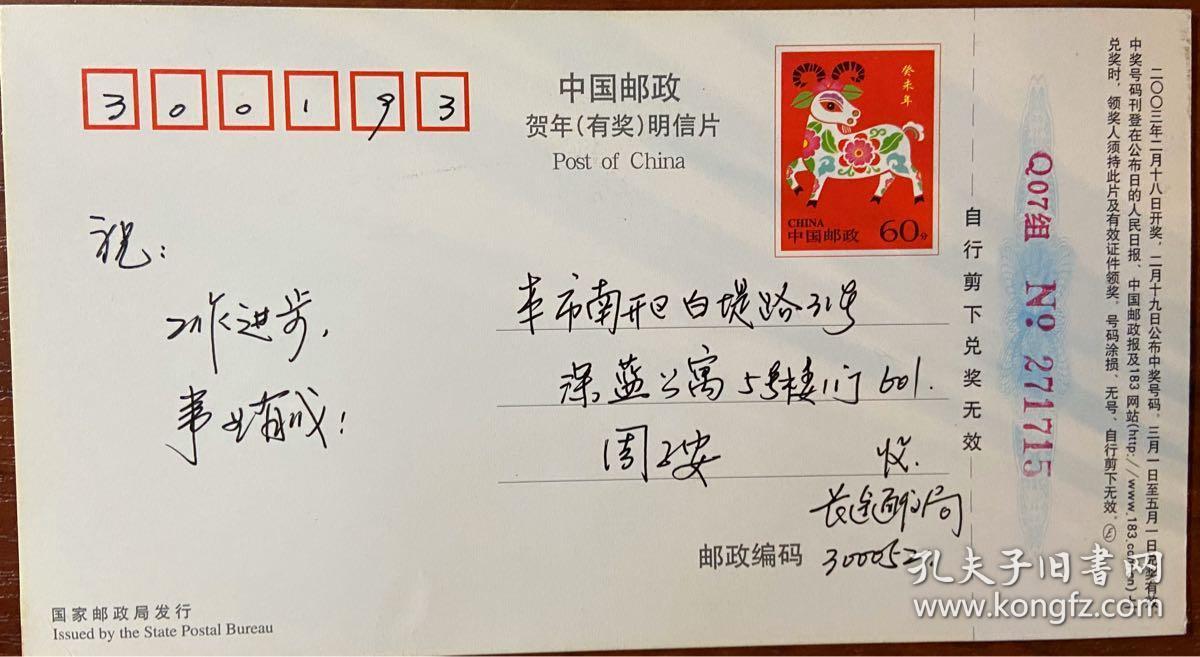 300193
中国邮政
贺年(有奖)明信片
Post of China
癸未年
CHINA
中国邮政 60分
祝:
工作进步,
事业有成!
本市南开区白堤路31号
深蓝公寓5号楼1门601.
周 安 收.
长途通信局
邮政编码 300052
国家邮政局发行
Issued by the State Postal Bureau
自行剪下兑奖无效
Q07组 № 271715
二〇〇三年二月十八日开奖,二月十九日公布中奖号码。三月一日至五月一日兑奖有效
中奖号码刊登在公布日的人民日报、中国邮政报及183网站(http://www.183.co
兑奖时,领奖人须持此片及有效证件领奖。号码涂损、无号、自行剪下无效。
孔夫子旧书网
www.kongfz.com